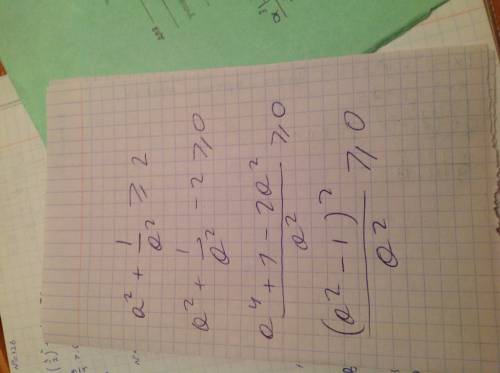 a² + 1/a² ≥ 2
a² + 1/a² - 2 ≥ 0
(a⁴ + 1 - 2a²)/a² ≥ 0
(a² - 1)²/a² ≥ 0